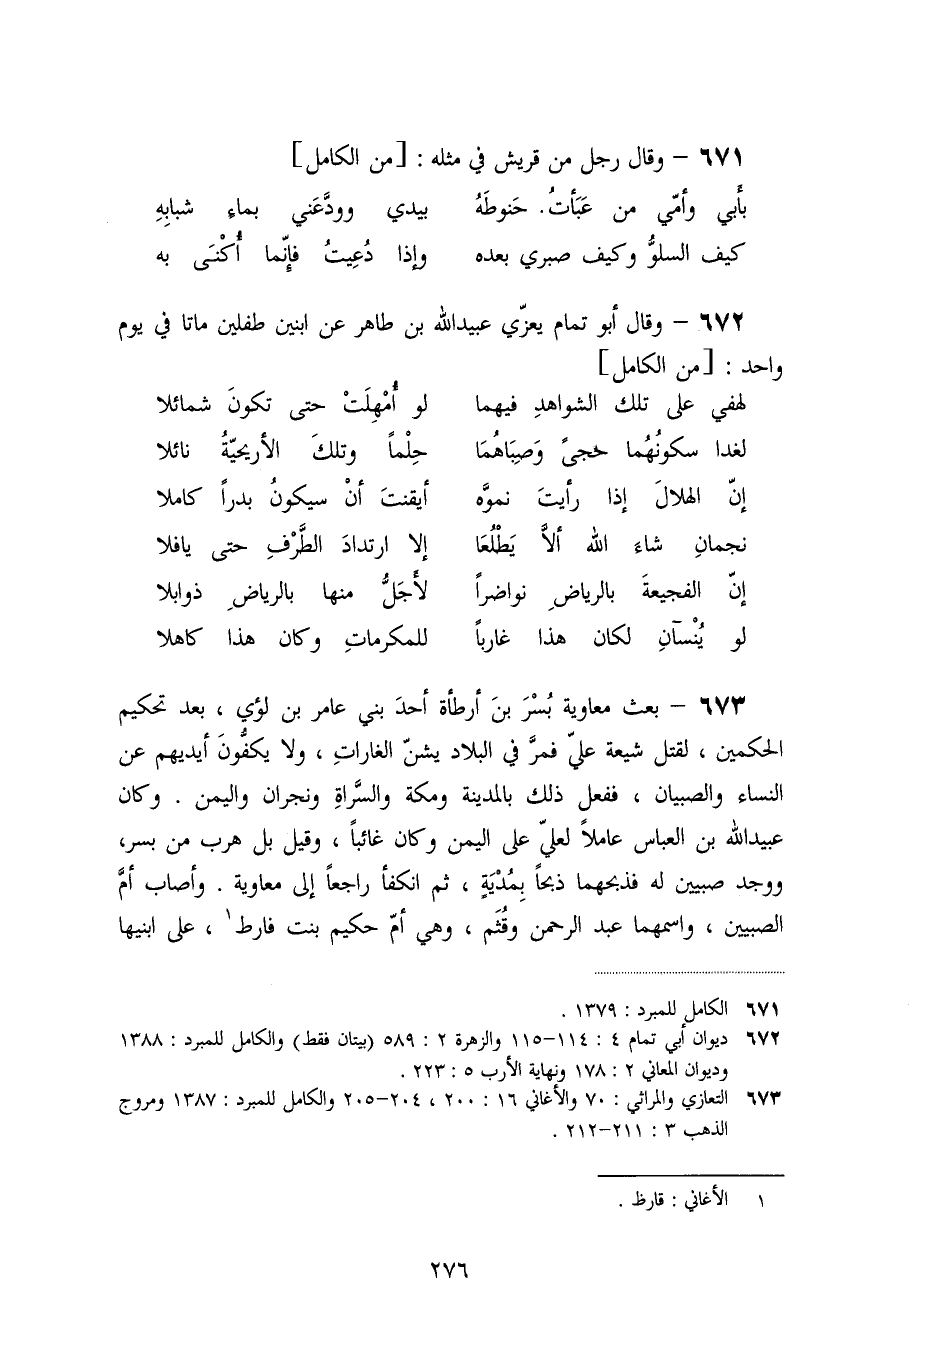 ٦٧١ – وقال رجل من قريش في مثله : [من الكامل]
بأَبي وأمّي من عَبَأتُ. حَنوطَهُ بيدي وودَّعَني بماءِ شبابِهِ
كيف السلوُّ وكيف صبري بعده وإذا دُعِيتُ فإِنّما أُكْنَى به
٦٧٢ – وقال أبو تمام يعزّي عبيدالله بن طاهر عن ابنين طفلين ماتا في يوم
واحد : [من الكامل]
لهفي على تلك الشواهدِ فيهما لو أُمْهِلَتْ حتى تكونَ شمائلا
لغدا سكونُهُما حجىً وَصِبَاهُمَا حِلْماً وتلكَ الأريحيّةُ نائلا
إنّ الهلالَ إذا رأيتَ نموَّه أيقنتَ أنْ سيكونُ بدراً كاملا
نجمانِ شاءَ الله ألاَّ يَطْلُعَا إلا ارتدادَ الطَّرْفِ حتى يافلا
إنّ الفجيعةَ بالرياضِ نواضراً لأَجَلُّ منها بالرياضِ ذوابلا
لو يُنْسآنِ لكان هذا غارباً للمكرماتِ وكان هذا كاهلا
٦٧٣ – بعث معاوية بُسْرَ بنَ أرطأة أحدَ بني عامر بن لؤي ، بعد تحكيم
الحكمين ، لقتل شيعة عليّ فمرَّ في البلاد يشنّ الغاراتِ ، ولا يكفُّونَ أيديهم عن
النساء والصبيان ، ففعل ذلك بالمدينة ومكة والسَّراةِ ونجران واليمن . وكان
عبيدالله بن العباس عاملاً لعليّ على اليمن وكان غائباً ، وقيل بل هرب من بسر،
ووجد صبيين له فذبحهما ذبحاً بِمُدْيَةٍ ، ثم انكفأ راجعاً إلى معاوية . وأصاب أمَّ
الصبيين ، واسمهما عبد الرحمن وقُثَم ، وهي أمّ حكيم بنت فارط١ ، على ابنيها
٦٧١ الكامل للمبرد : ١٣٧٩ .
٦٧٢ ديوان أبي تمام ٤ : ١١٤–١١٥ والزهرة ٢ : ٥٨٩ (بيتان فقط) والكامل للمبرد : ١٣٨٨
وديوان المعاني ٢ : ١٧٨ ونهاية الأرب ٥ : ٢٢٣ .
٦٧٣ التعازي والمراثي : ٧٠ والأغاني ١٦ : ٢٠٠ ، ٢٠٤–٢٠٥ والكامل للمبرد : ١٣٨٧ ومروج
الذهب ٣ : ٢١١–٢١٢ .
١ الأغاني : قارظ .
٢٧٦